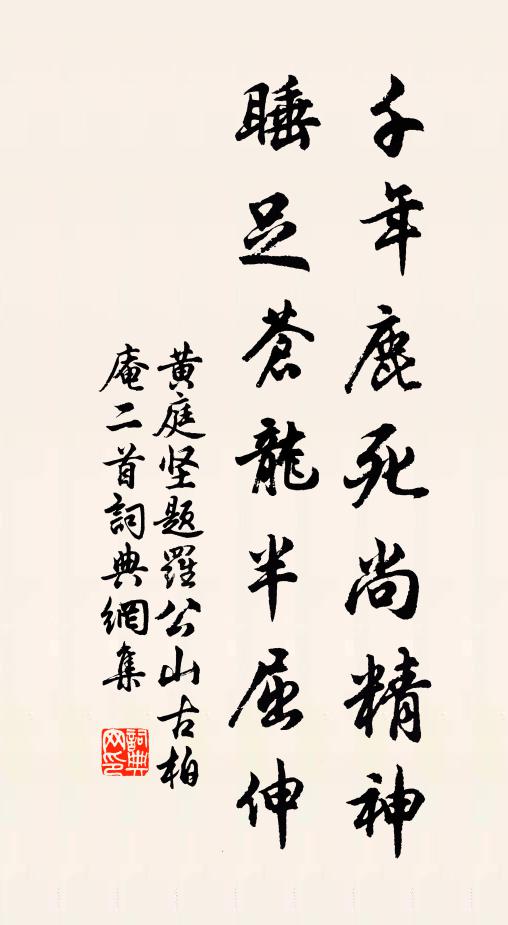 千年鹿死尚精神
睡足蒼龍半屈伸
黄庭坚题羅公山古柏
庵二首詞典網集
詞典
网印